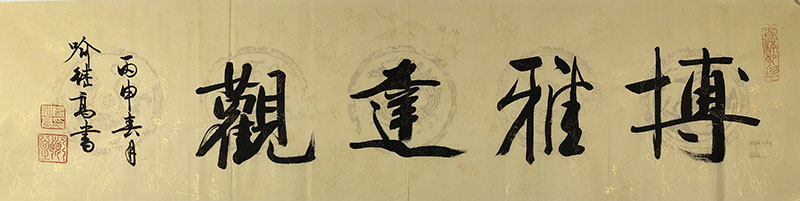 博雅達觀
丙申春月
喻继高書